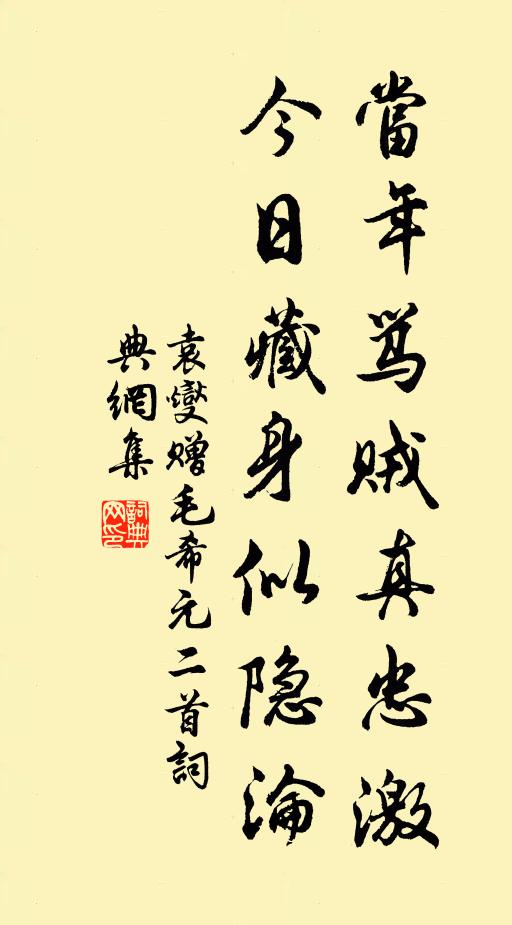 當年骂贼真忠激
今日藏身似隐淪
袁燮赠毛希元二首詞
典網集
詞典
网印